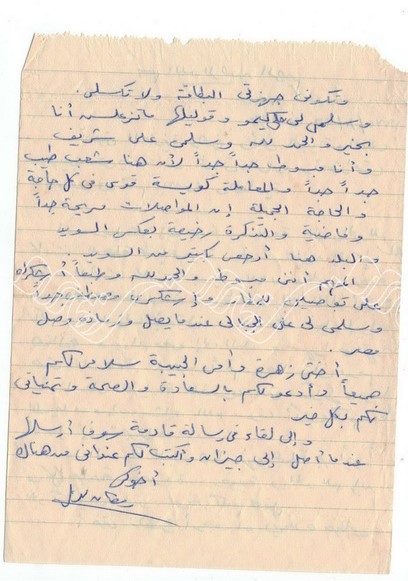 وتكونى جهزتى البطاقة ولا تكسلى.
وسلمى لى على ليمو وقوليلها ماتزعلش أنا
بخير والحمد لله وسلمى على شريف
وأنا مبسوط جداً جداً لأن هنا شعب طيب
جداً جداً والمعاملة كويسة قوى فى كل حاجة
والحاجة الجميلة إن المواصلات مريحة جداً
وفاضية والتذكرة رخيصة بعكس السويد
والبلد هنا أرخص بكتير من السويد.
المهم أننى مبسوط والحمد لله
على جداً
وسلمى لى على عندما يصل وزمانه وصل
مصر.
أختى زهرة وأمى الحبيبة سلامى لكم
جميعاً وأدعو لكم بالسعادة والصحة وتمنياتى
لكم بكل خير.
وإلى لقاء فى رسالة قادمة سوف أرسلها
عندما أصل إلى جيزان وأكتب لكم عنوانى من هناك
أخوكى